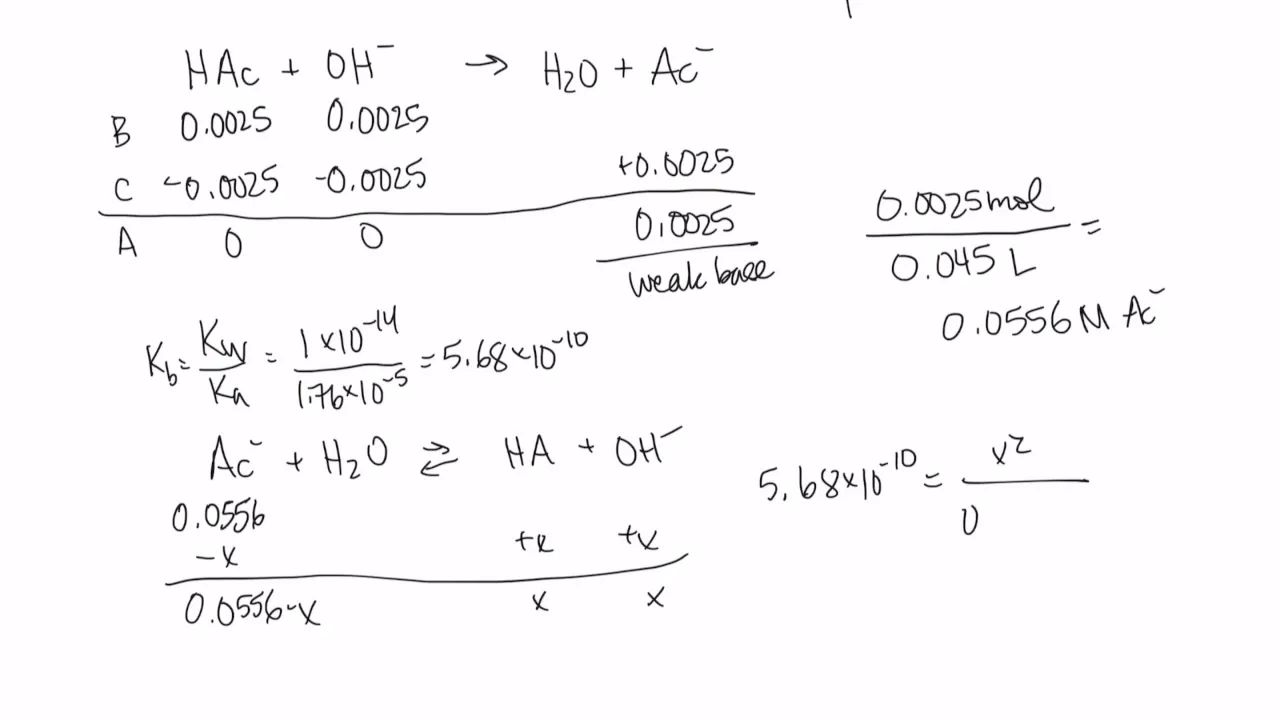 HAc + OH⁻ → H2O + Ac⁻
B 0.0025 0.0025
C -0.0025 -0.0025 +0.0025
A 0 0 0.0025
weak base
0.0025 mol
0.045 L
=
0.0556 M Ac⁻
Kb = Kw/Ka = 1×10⁻¹⁴/1.76×10⁻⁵ = 5.68×10⁻¹⁰
Ac⁻ + H2O ⇌ HA + OH⁻
0.0556
-x +x +x
0.0556-x x x
5.68×10⁻¹⁰ = x²
0